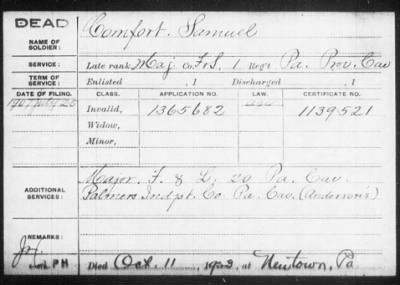 DEAD
Comfort, Samuel
NAME OF SOLDIER:
SERVICE: Late rank, Maj. Co. F&S, 1 Reg't Pa. Prov. Cav
TERM OF SERVICE: Enlisted , 1 Discharged , 1
DATE OF FILING. CLASS. APPLICATION NO. LAW. CERTIFICATE NO.
1907
Invalid, 1365682 1139521
Widow,
Minor,
ADDITIONAL SERVICES:
Major F & S. 20 Pa. Cav.
Palmers Indpt. Co. Pa. Cav. (Anderson's)
REMARKS:
PH Died Oct. 11 , at Newtown, Pa